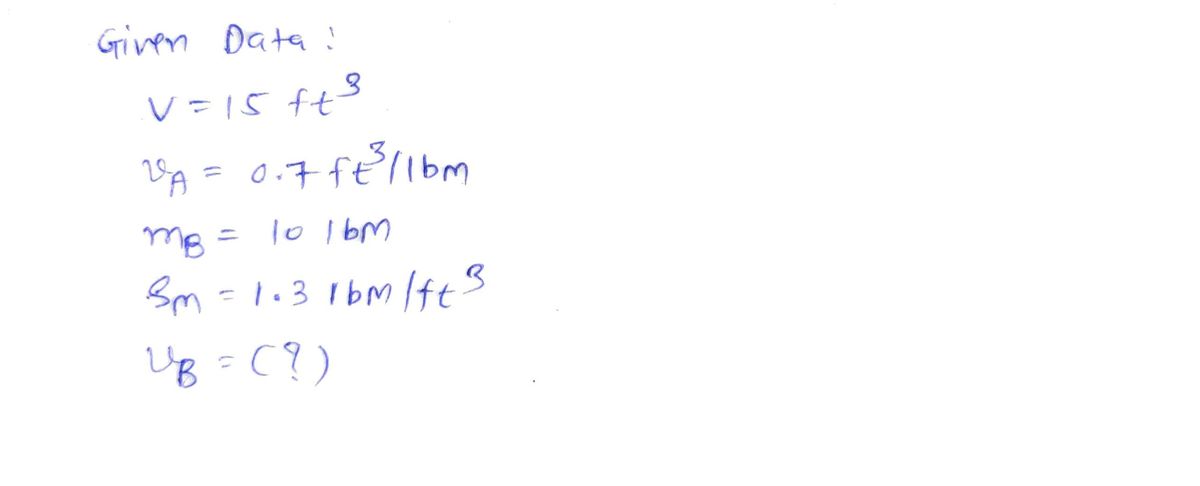 Given Data :
V = 15 ft³
v_A = 0.7 ft³/lbm
m_B = 10 lbm
ρ_m = 1.3 lbm/ft³
v_B = (?)